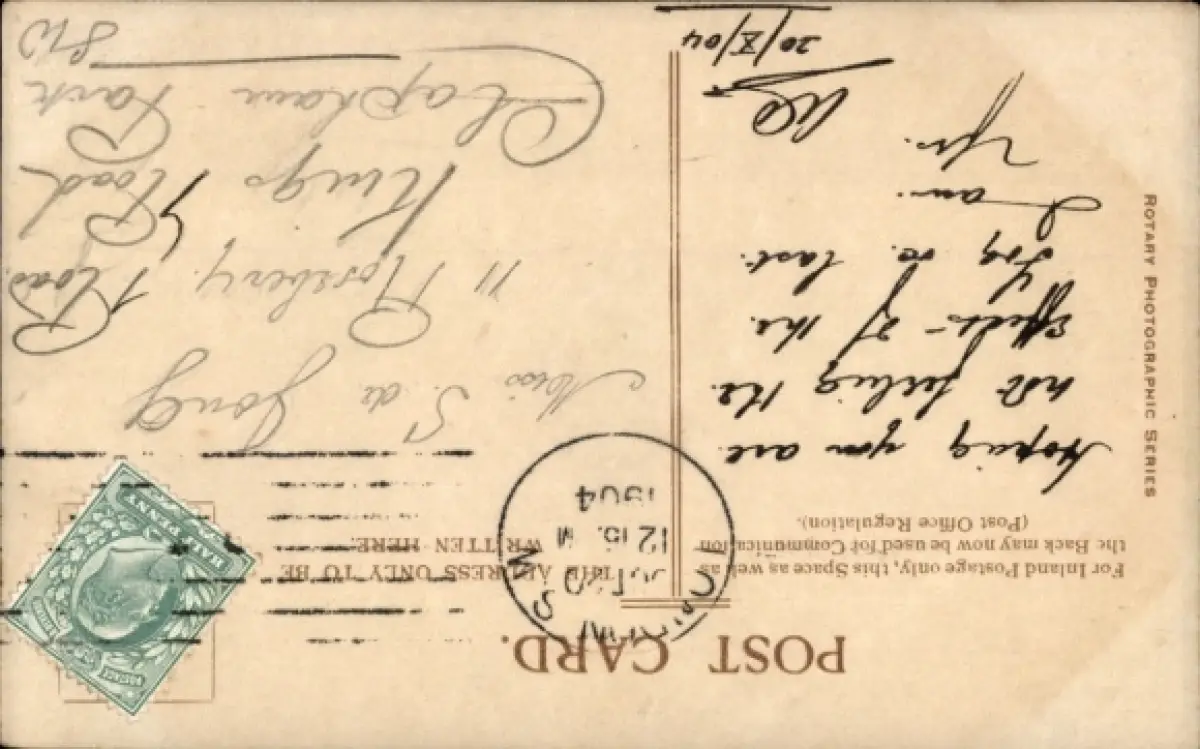 POST CARD.
For Inland Postage only, this Space as well as
the Back may now be used for Communication
(Post Office Regulation).
THE ADDRESS ONLY TO BE
WRITTEN HERE.
ROTARY PHOTOGRAPHIC SERIES
Hoping you are
not feeling the
effects of the
fog so last.
I am.
Yrs.
20/X/04
Miss S. de Jong
11 Rosebery Road
Kings Road
Clapham Park
SW
12 15. M
1904
HALF PENNY
POSTAGE